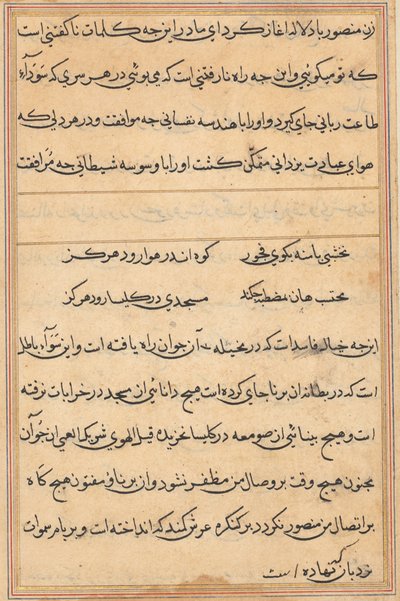 زن منصور با دلاله اغاز کرد ای مادر این چه کلمات ناگفتنی است
که تو میگوئی و این چه راه نارفتنی است که می پوئی در هر سری که سودآء
طاعت ربانی جای گیرد و او را با هندسه نفسانی چه موافقت و در هر دلی که
هوای عبادت یزدانی متمکن گشت او را با وسوسه شیطانی چه مرافقت
نخشبی پا منه بکوی فجور کوه اندر هوا رود هرگز
محتسب هان مصطبه مسجدی در کلیسا رود هرگز
این چه خیال فاسد است که در مخیله آن جوان راه یافته است و این سودآء باطل
است که در بطانه ان برنا جای کرده است هیچ دانائی از مسجد در خرابات نرفته
است و هیچ بینائی از صومعه در کلیسا نخزیده قیل الهوی شریک العمی ان جوان
مجنون هیچ وقت بر وصال من مظفر نشود و ان برناء مفتون هیچ کاه
بر اتصال من منصور نکردد بر کنکره عرش کمند که انداخته است و بر بام سموات
نردبان که نهاده است